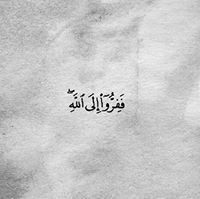 فَفِرُّوٓا۟ إِلَى ٱللَّهِ ۖ